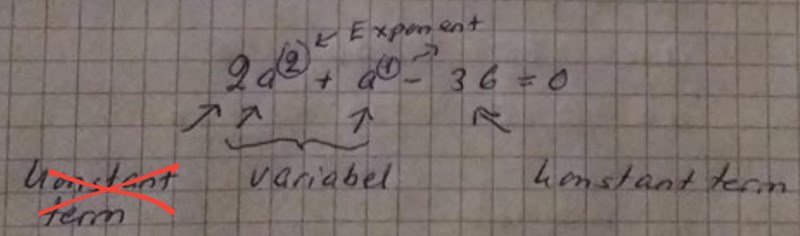 Exponent
2a² + a¹ - 36 = 0
Konstant variabel Konstant term
term